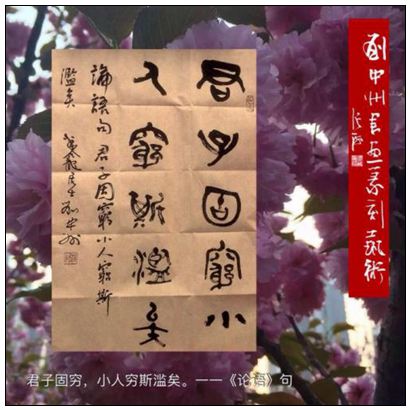 劉中州書画篆刻藝術
君子固窮小
人窮斯濫矣
論語句 君子固窮小人窮斯
濫矣
君子固穷，小人穷斯滥矣。——《论语》句